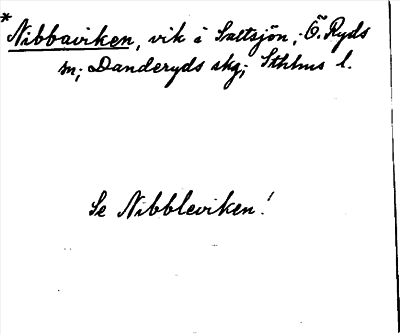 *Nibbaviken, vik i Saltsjön, Ö. Ryds
sn; Danderyds skg; Sthlms l.
Se Nibbleviken!